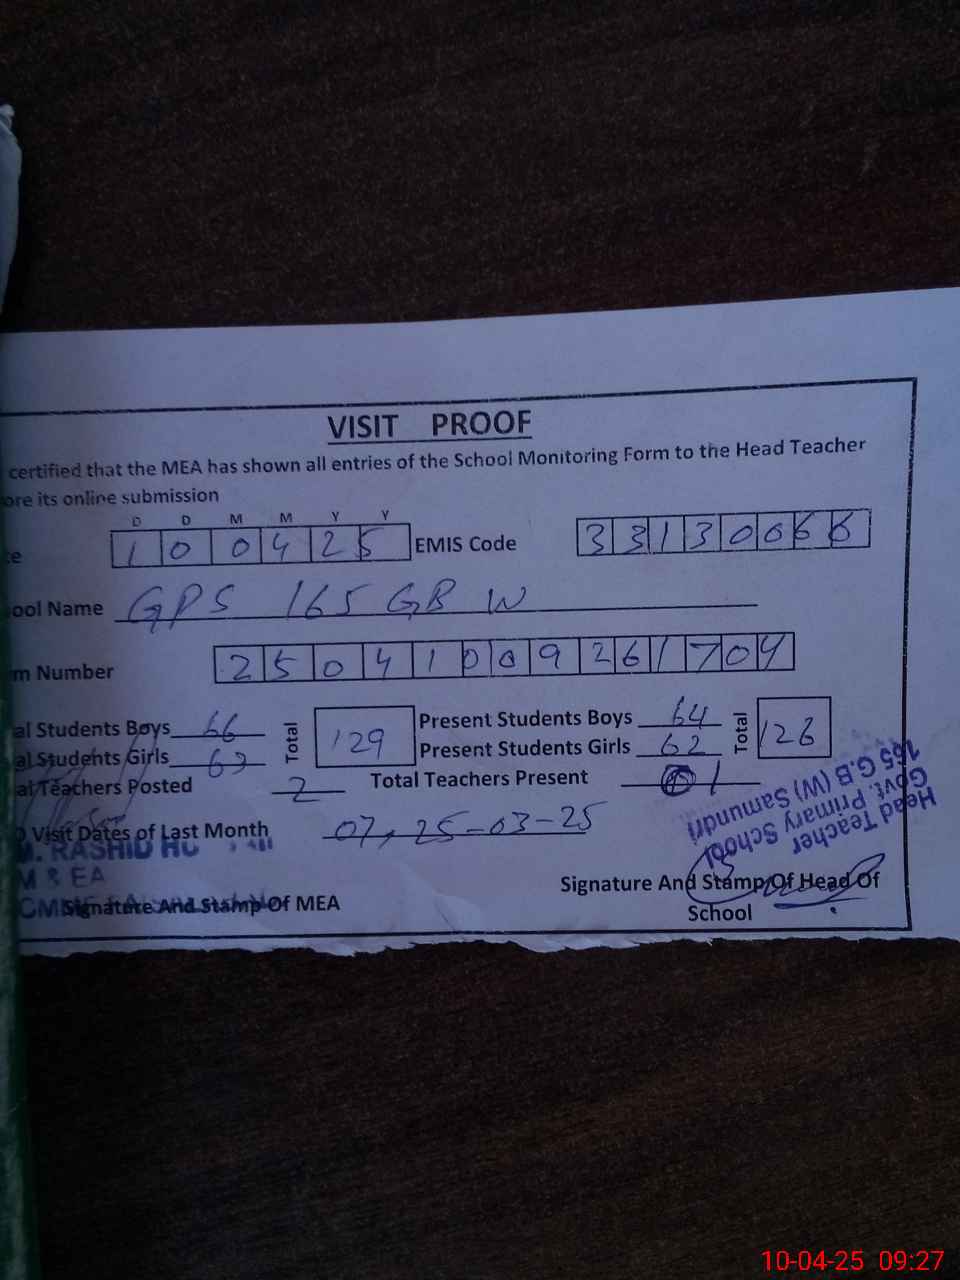 VISIT PROOF
certified that the MEA has shown all entries of the School Monitoring Form to the Head Teacher
ore its online submission
D D M M Y Y
te 1 0 0 4 2 5 EMIS Code 3 3 1 3 0 0 6 6
ool Name GPS 165 GB W
m Number 2 5 0 4 1 0 0 9 2 6 1 7 0 4
al Students Boys 66 Total 129 Present Students Boys 64 Total 126
al Students Girls 63 Present Students Girls 62
al Teachers Posted 2 Total Teachers Present 1
Visit Dates of Last Month 07, 25-03-25
M. RASHID
M & EA
Signature And Stamp Of MEA
Head Teacher
Govt. Primary School
165 G.B (W) Samundri
Signature And Stamp Of Head Of
School
10-04-25 09:27